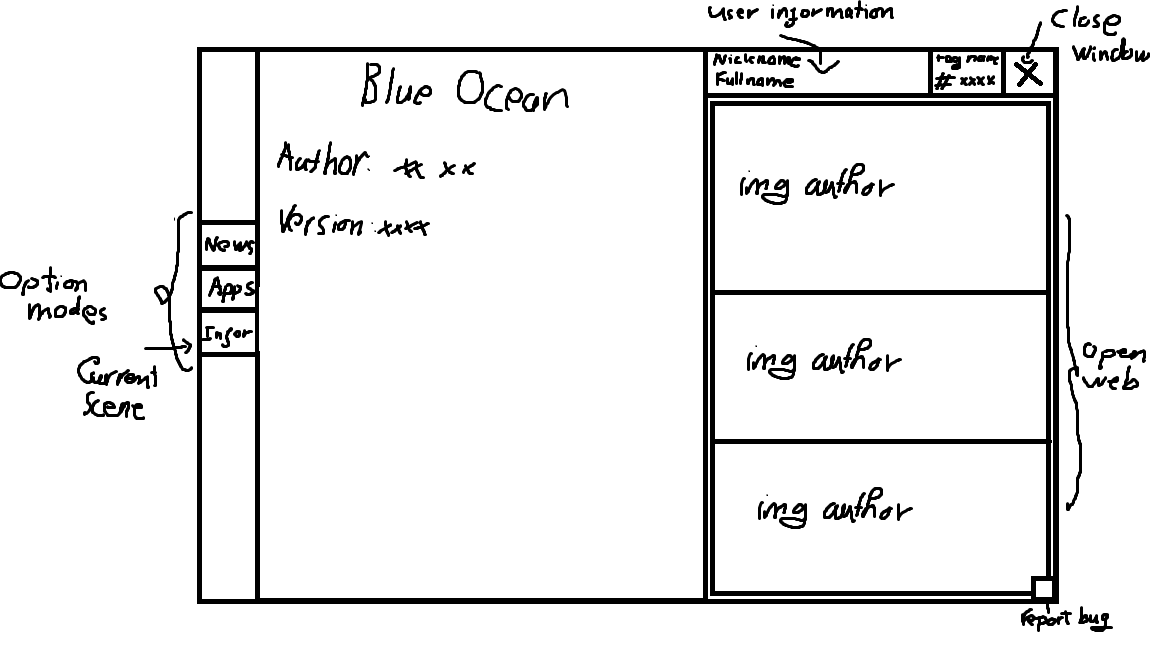 User information
Close
Window
Nickname
Fullname
tag name
# xxxx
X
Blue Ocean
Author: xx xx
Version: xxxx
img author
News
Apps
Infor
Option
modes
Current
Scene
img author
Open
web
img author
report bug